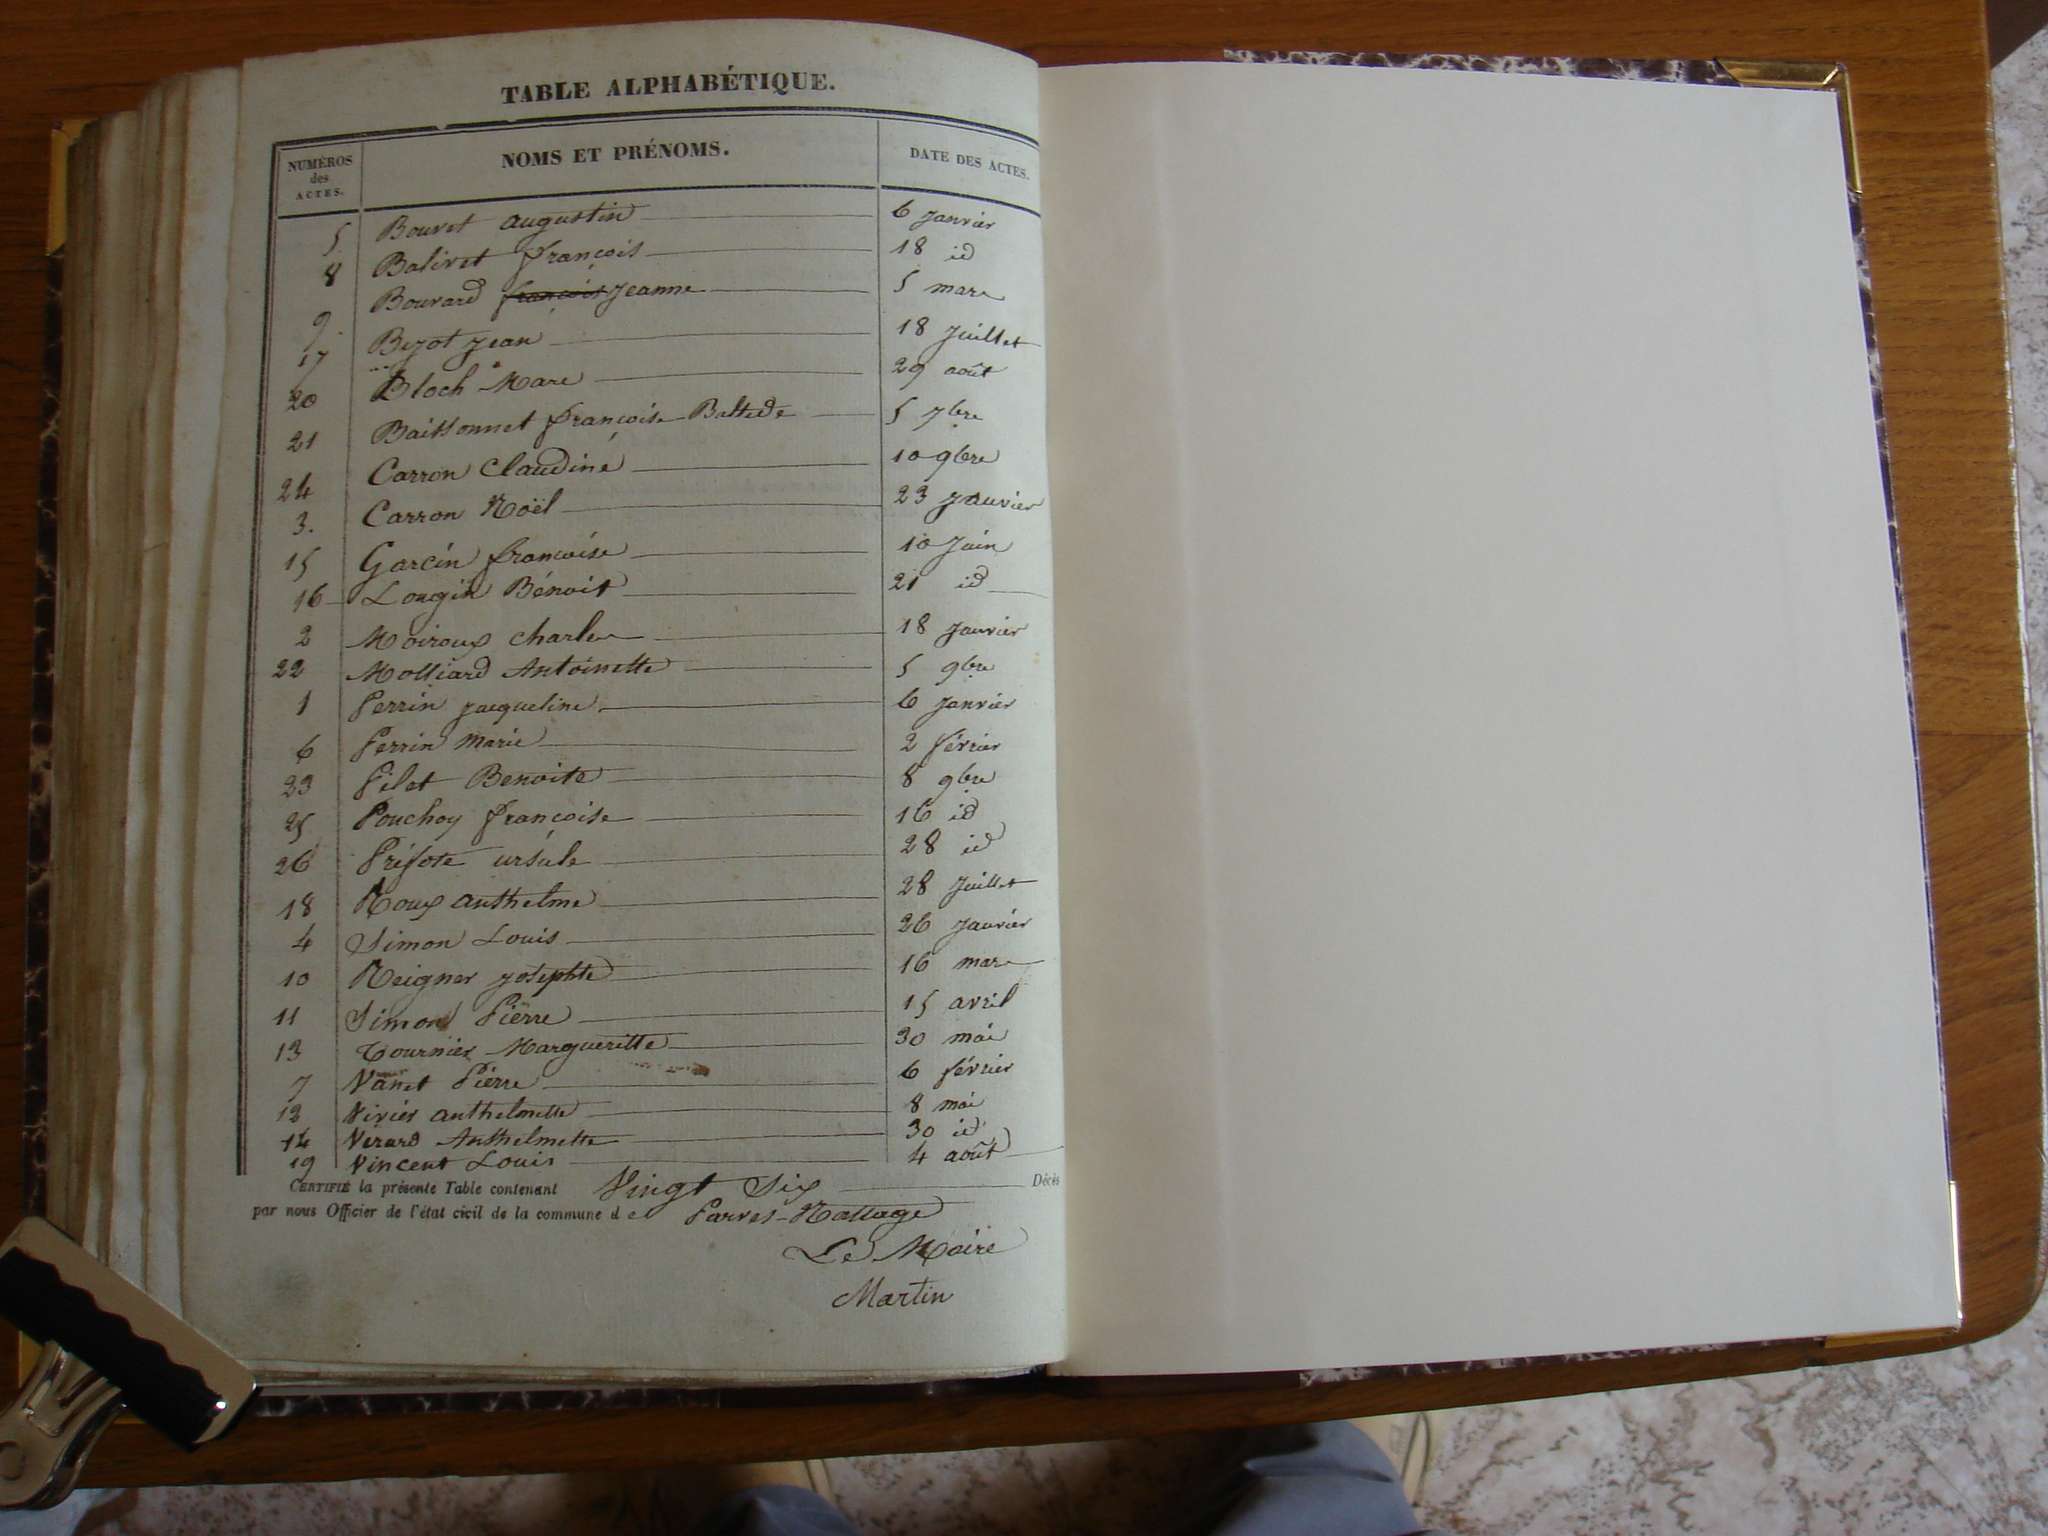 TABLE ALPHABÉTIQUE.
NUMÉROS des ACTES. NOMS ET PRÉNOMS. DATE DES ACTES.
5 Bouvet augustin 6 janvier
8 Balivet françois 18 id
9 Bouvard françois jeanne 5 mars
17 Bezot jean 18 juillet
20 Bloch Marc 29 août
21 Baissonnet françoise 5 7bre
24 Carron Claudine 10 9bre
3. Carron Noël 23 janvier
15 Garcin francoise 10 juin
16 Lougin Bénoit 21 id
2 Moiroux charles 18 janvier
22 Molliard Antoinette 5 9bre
1 Perrin jacqueline 6 janvier
6 Perrin marie 2 février
23 Pilet Benoite 8 9bre
25 Pouchoy françoise 16 id
26 ursule 28 id
18 Roux anthelme 28 juillet
4 Simon Louis 26 janvier
10 Reigner josephte 16 mars
11 Simon Pierre 15 avril
13 Tournier Margueritte 30 mai
7 Vanet Pierre 6 février
12 Vivier anthelmette 8 mai
14 Verard Anthelmette 30 id
19 Vincent Louis 4 août
CERTIFIÉ la présente Table contenant Vingt Six Décès
par nous Officier de l'état civil de la commune de Parves-Nattage
Le Maire
Martin